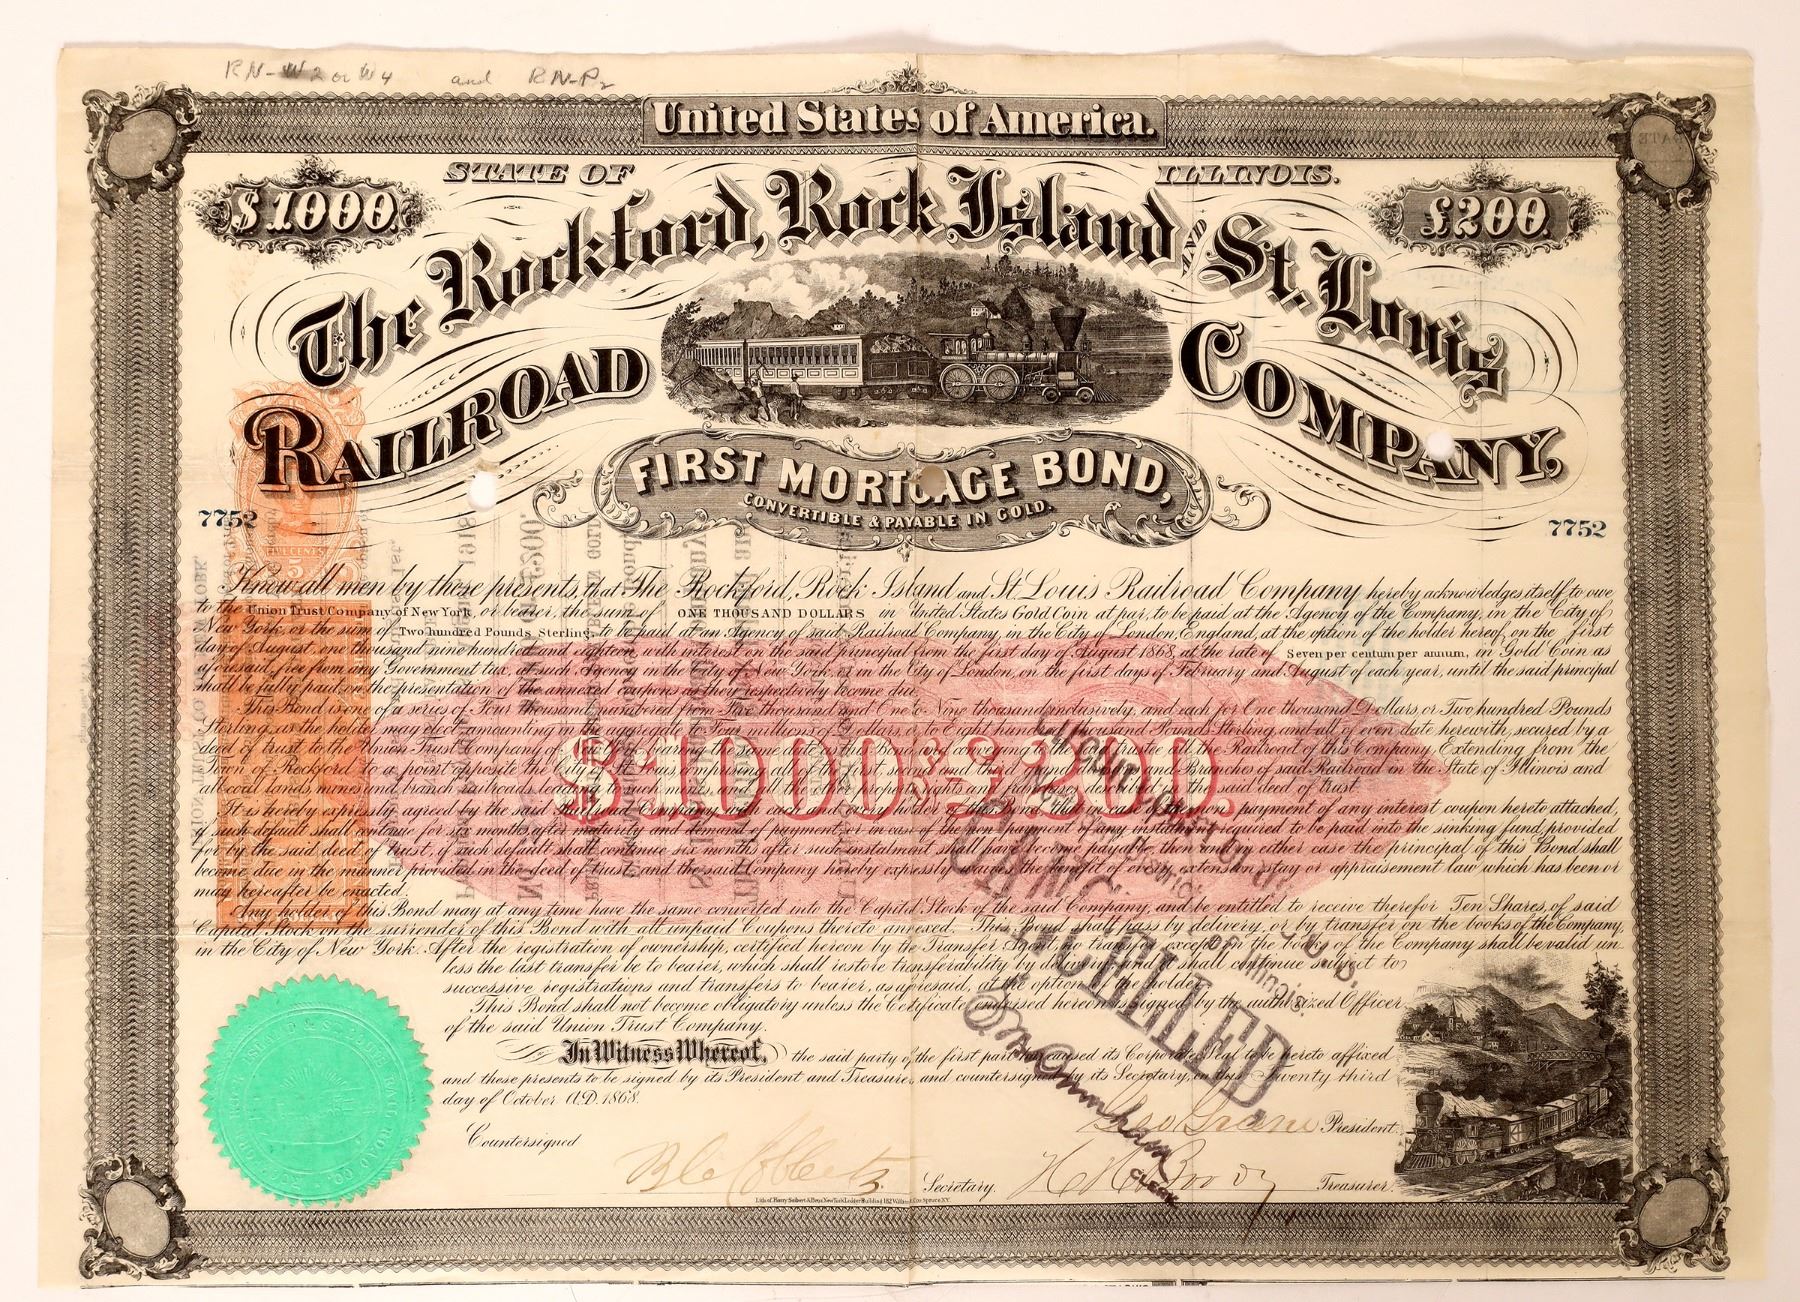 RN-W2 or W4 and RN-P2
United States of America.
STATE OF ILLINOIS.
$1000.
£200.
The Rockford, Rock Island AND St. Louis
RAILROAD COMPANY,
FIRST MORTGAGE BOND,
CONVERTIBLE & PAYABLE IN GOLD.
7752 7752
Know all men by these presents, that The Rockford, Rock Island and St. Louis Railroad Company hereby acknowledges itself to owe
to the Union Trust Company of New York, or bearer, the sum of ONE THOUSAND DOLLARS in United States Gold Coin at par, to be paid at the Agency of the Company, in the City of
New York, or the sum of Two hundred Pounds Sterling, to be paid at an Agency of said Railroad Company, in the City of London, England, at the option of the holder hereof, on the first
day of August, one thousand nine hundred and eighteen, with interest on the said principal from the first day of August 1868, at the rate of Seven per centum per annum, in Gold Coin as
aforesaid, free from any Government tax, at such Agency in the City of New York, or in the City of London, on the first days of February and August of each year, until the said principal
shall be fully paid, on the presentation of the annexed coupons as they respectively become due.
This Bond is one of a series of Four thousand, numbered from Five thousand and One to Nine thousand, inclusively, and each for One thousand Dollars, or Two hundred Pounds
Sterling, as the holder may elect, amounting in the aggregate to Four millions of Dollars, or Eight hundred thousand Pounds Sterling, and all of even date herewith, secured by a
deed of trust to the Union Trust Company of New York, bearing the same date as this Bond, and conveying to the said trustee all the Railroad of this Company, Extending from the
Town of Rockford to a point opposite the City of St. Louis comprising all of the first, second and third grand divisions and Branches of said Railroad in the State of Illinois and
all coal lands, mines and branch railroads leading to such mines, and all other property rights and franchises described in the said deed of trust.
It is hereby expressly agreed by the said Railroad Company, with each and every holder of this Bond, that in case of the non payment of any interest coupon hereto attached,
if such default shall continue for six months after maturity and demand of payment, or in case of the non payment of any instalment required to be paid into the sinking fund, provided
for by the said deed of trust, if such default shall continue six months after such instalment shall have become payable, then and in either case the principal of this Bond shall
become due in the manner provided in the deed of trust, and the said Company hereby expressly waives the benefit of every extension, stay or appraisement law which has been or
may hereafter be enacted.
Any holder of this Bond may at any time have the same converted into the Capital Stock of the said Company, and be entitled to receive therefor Ten Shares, of said
Capital Stock on the surrender of this Bond with all unpaid Coupons thereto annexed. This Bond shall pass by delivery, or by transfer on the books of the Company,
in the City of New York. After the registration of ownership, certified hereon by the Transfer Agent, no transfer except on the books of the Company shall be valid un
less the last transfer be to bearer, which shall restore transferability by delivery, and it shall continue subject to
successive registrations and transfers to bearer, as aforesaid, at the option of the holder.
This Bond shall not become obligatory unless the Certificate endorsed hereon is signed by the authorized Officer
of the said Union Trust Company.
In Witness Whereof, the said party of the first part has caused its Corporate Seal to be hereto affixed
and these presents to be signed by its President and Treasurer, and countersigned by its Secretary, on this Twenty third
day of October A.D. 1868.
$1000 or £200.
CANCELLED.
Clerk
President.
Countersigned
Secretary.
Treasurer.